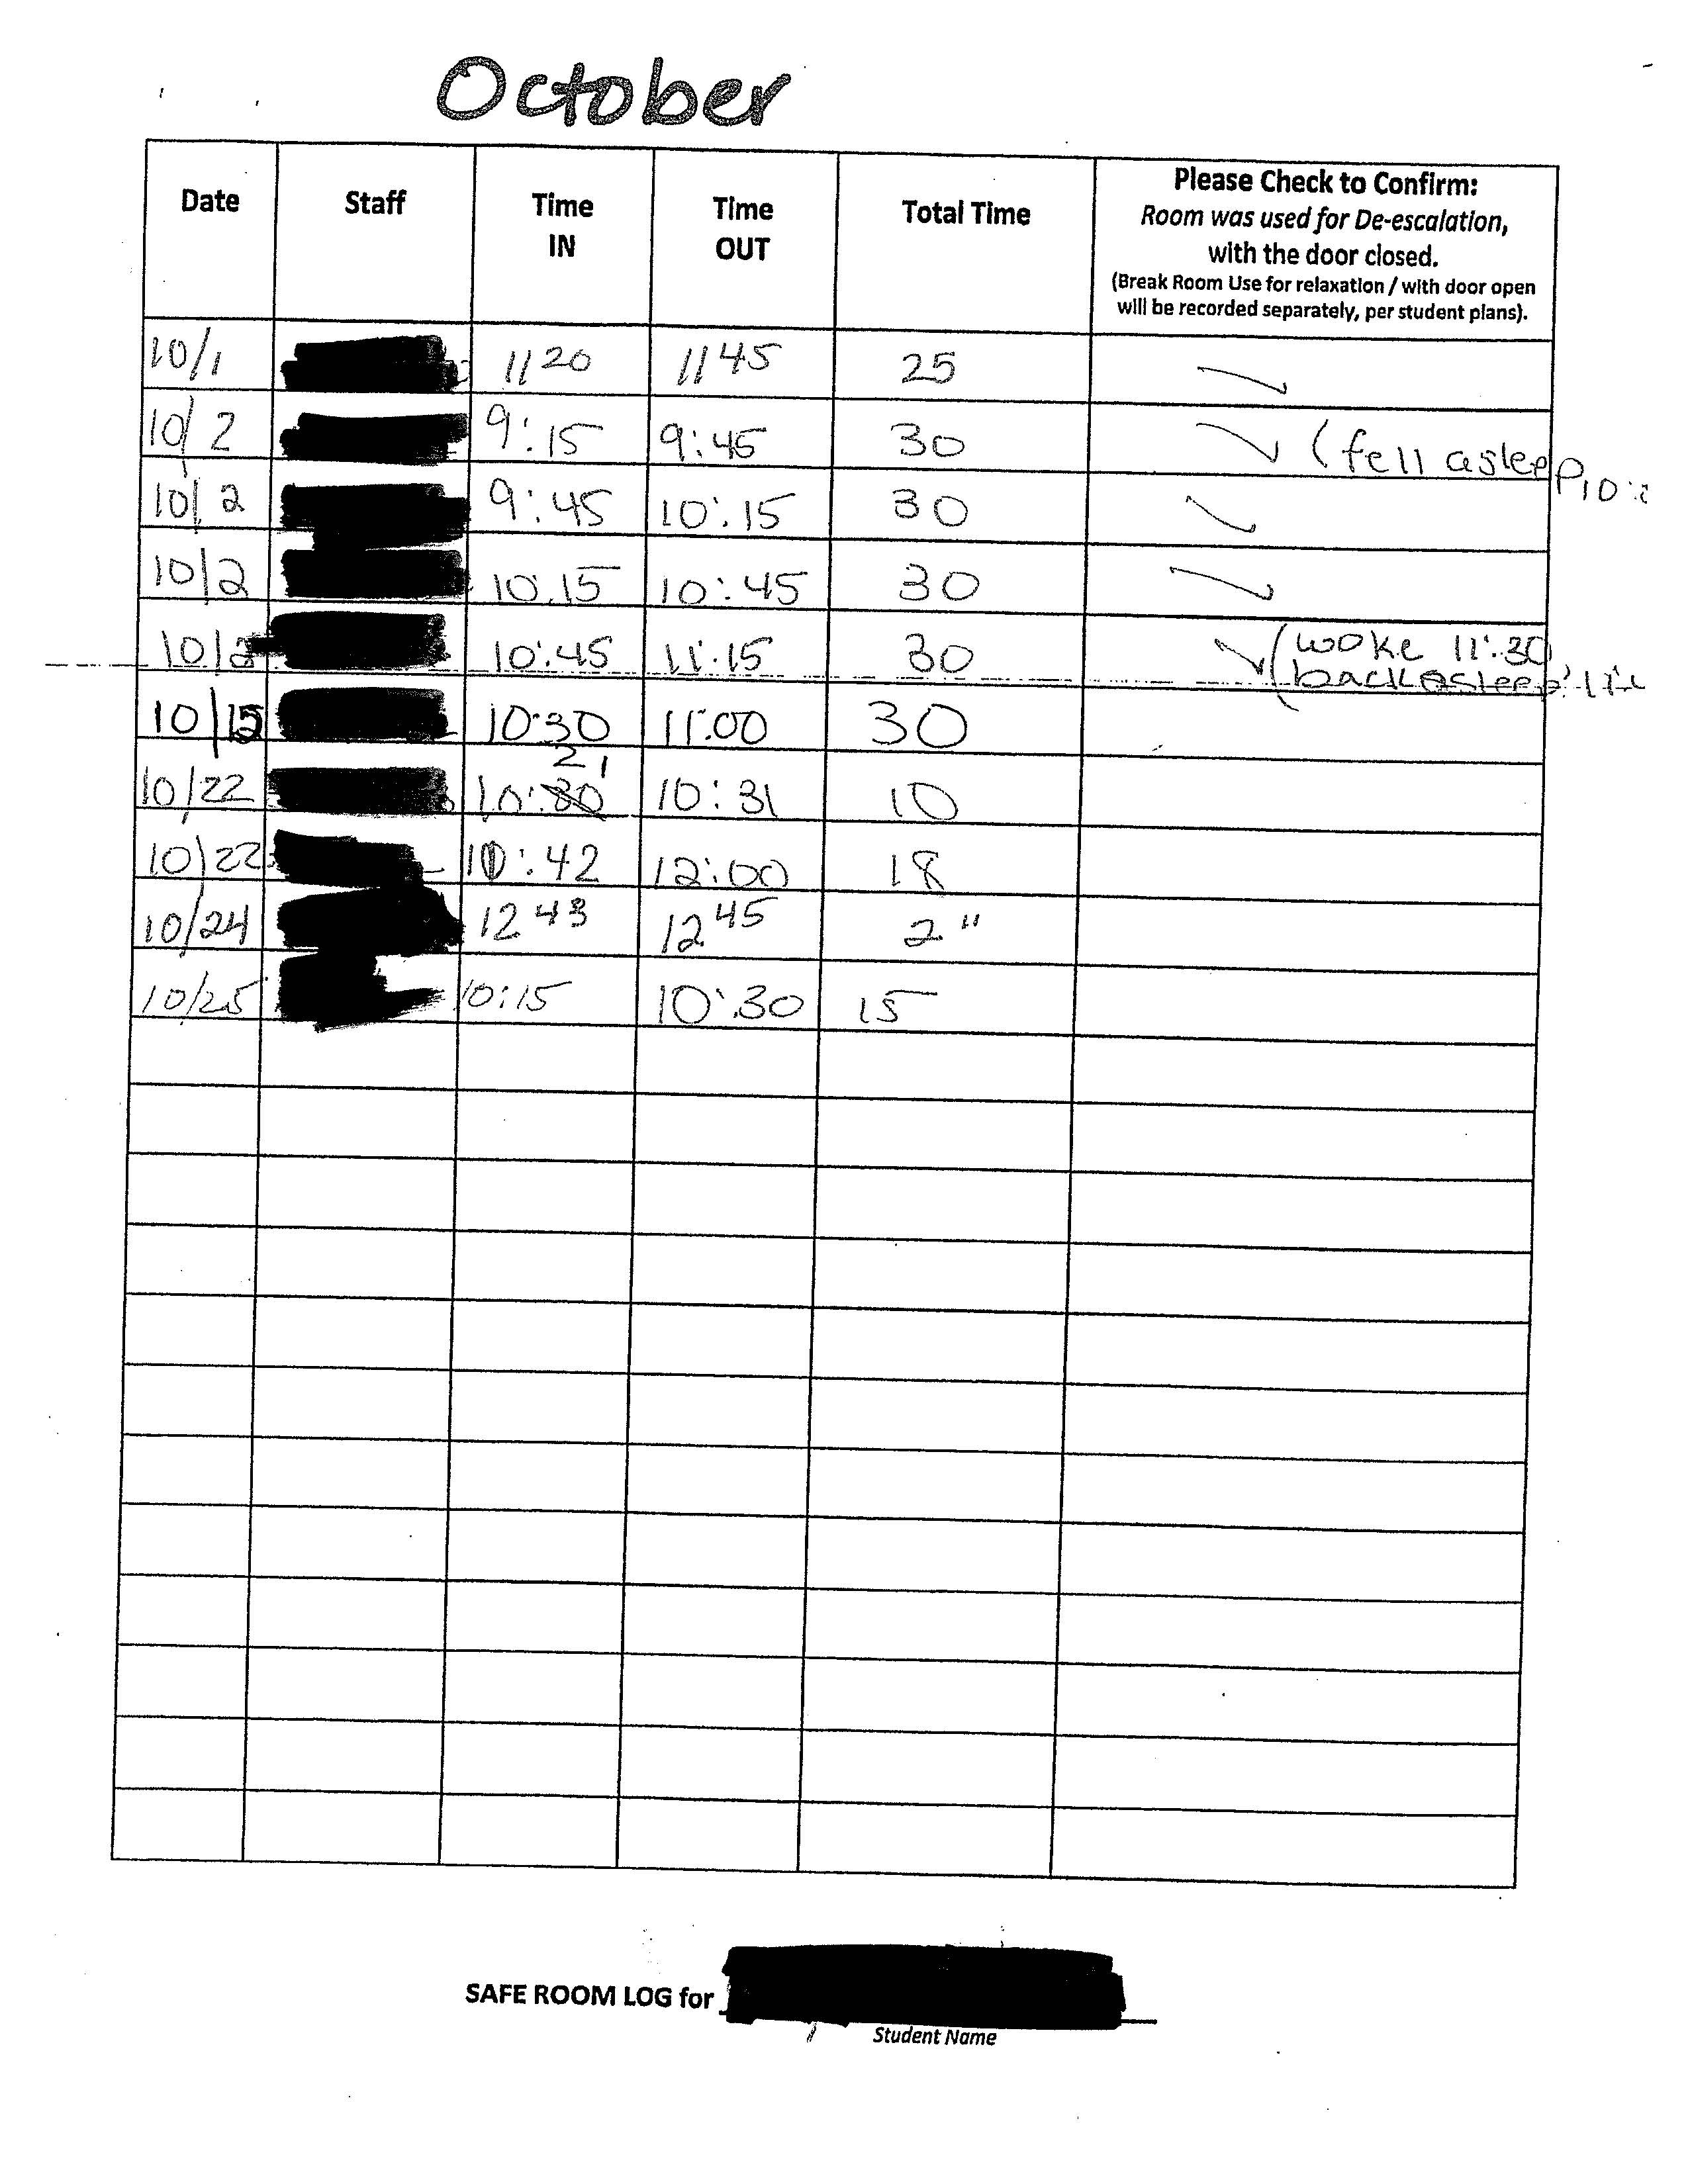 October
Date Staff Time IN Time OUT Total Time Please Check to Confirm:
Room was used for De-escalation,
with the door closed.
(Break Room Use for relaxation / with door open
will be recorded separately, per student plans).
10/1 11 20 11 45 25 ✓
10/2 9:15 9:45 30 ✓ (fell asleep
10/2 9:45 10:15 30 ✓
10/2 10:15 10:45 30 ✓
10/2 10:45 11:15 30 ✓ (woke 11:30
back asleep
10/15 10:30 11:00 30
10/22 10:21 10:31 10
10/22 :42 12:00 18
10/24 12 43 12 45 2"
10/25 10:15 10:30 15
SAFE ROOM LOG for
Student Name